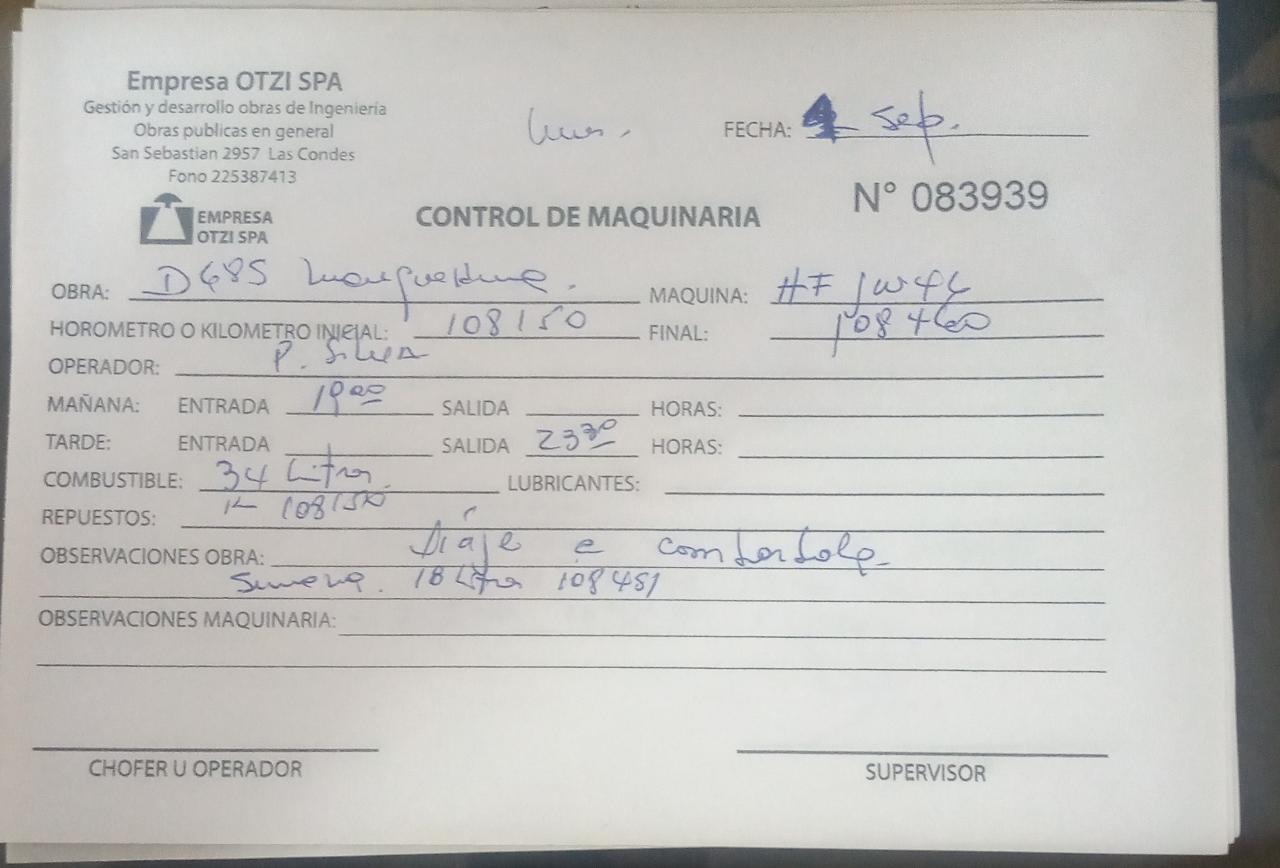 Empresa OTZI SPA
Gestión y desarrollo obras de Ingenieria
Obras publicas en general
San Sebastian 2957 Las Condes
Fono 225387413
EMPRESA
OTZI SPA
FECHA: 4 Sep.
N° 083939
CONTROL DE MAQUINARIA
OBRA: D685
MAQUINA:
HOROMETRO O KILOMETRO INICIAL: 108150 FINAL: 108460
OPERADOR: P. Silva
MAÑANA: ENTRADA 19 00 SALIDA HORAS:
TARDE: ENTRADA SALIDA 23 30 HORAS:
COMBUSTIBLE: 34 Litros LUBRICANTES:
REPUESTOS: K 108150
OBSERVACIONES OBRA: Viaje a
18 Litros 108451
OBSERVACIONES MAQUINARIA:
CHOFER U OPERADOR
SUPERVISOR